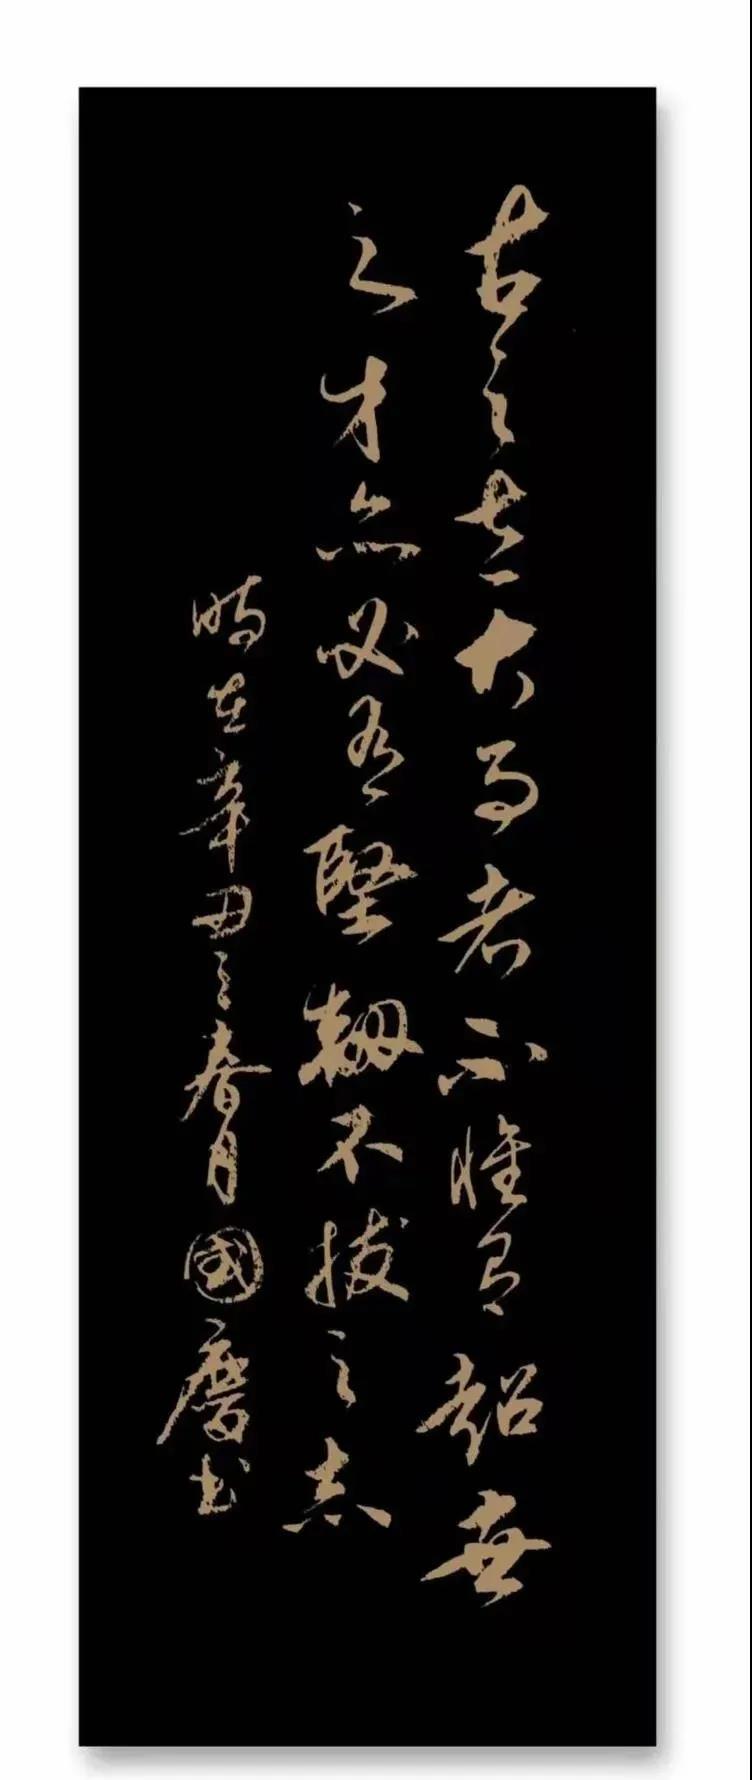 古之立大事者不惟有超世
之才亦必有堅韌不拔之志
時在辛丑之春月國書